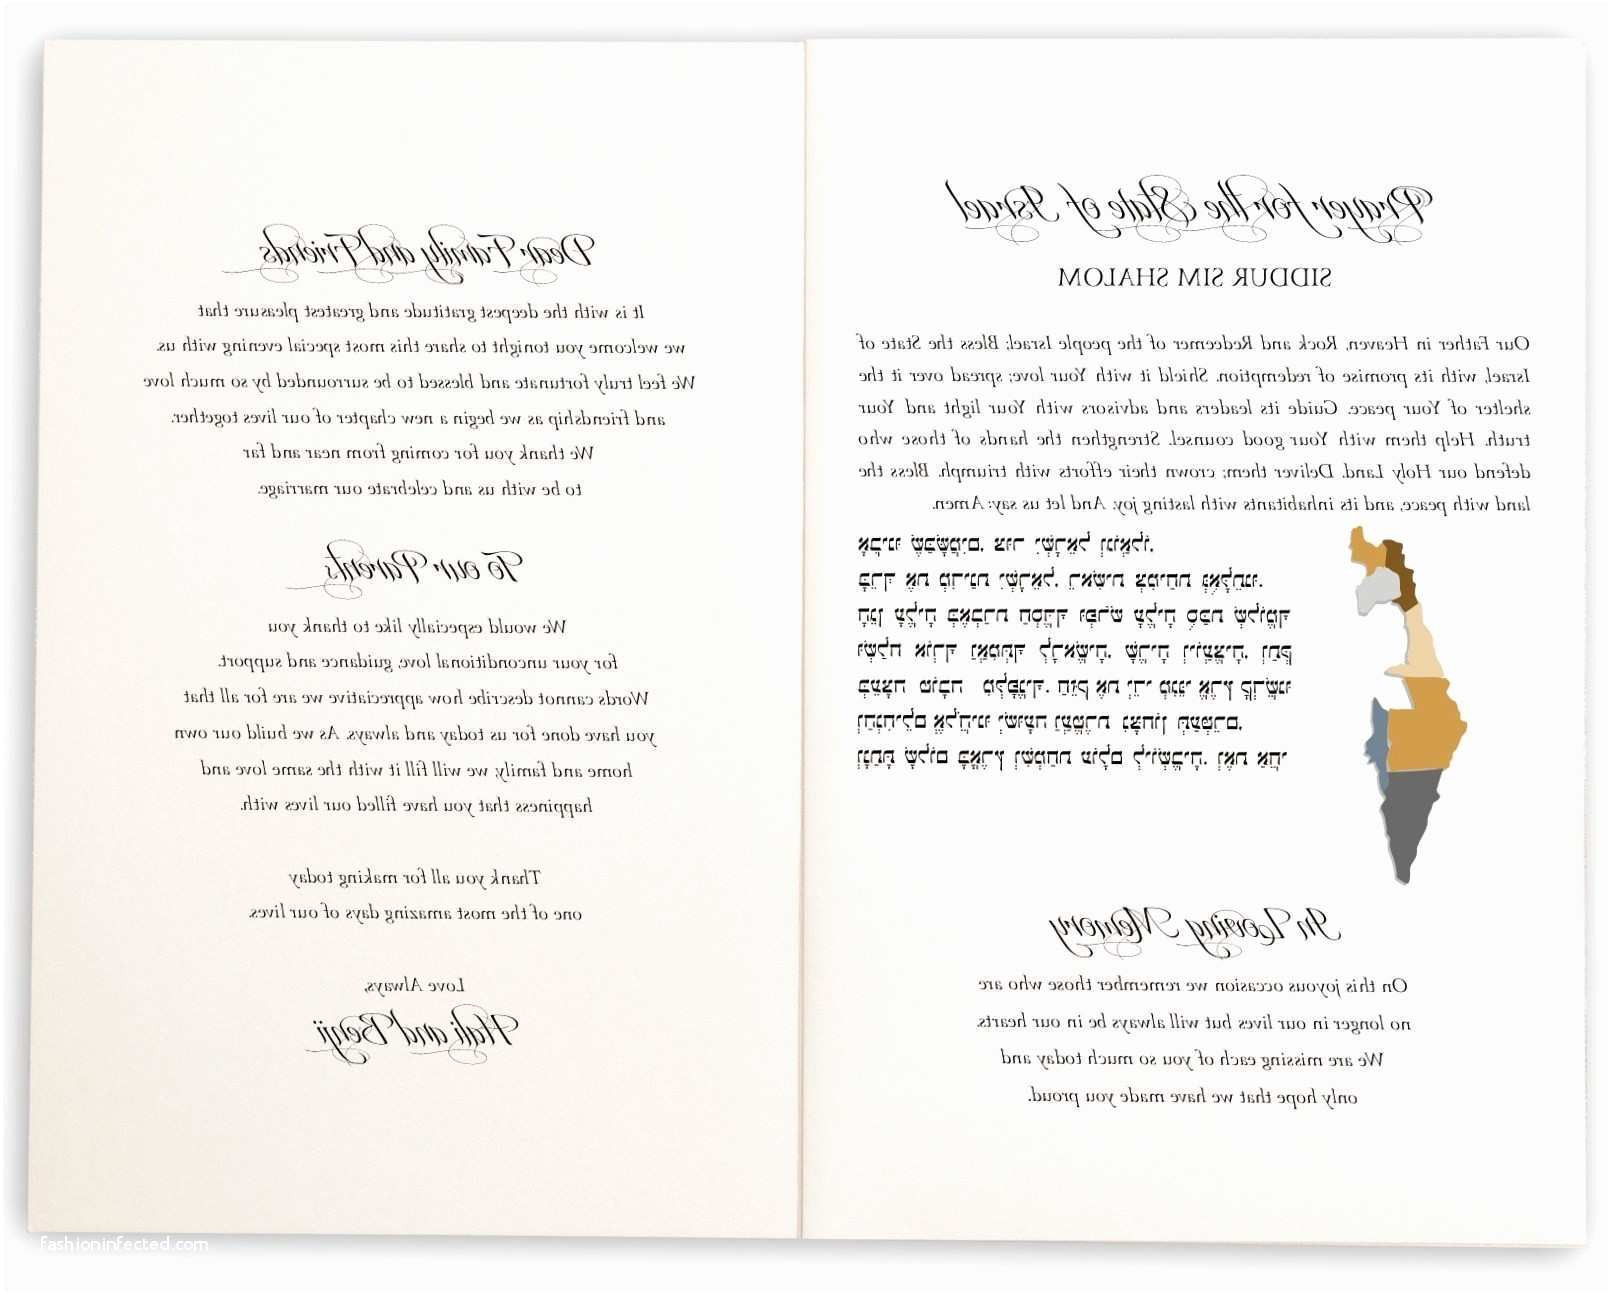 Prayer for the State of Israel
SIDDUR SIM SHALOM
Our Father in Heaven, Rock and Redeemer of the people Israel; Bless the State of
Israel, with its promise of redemption. Shield it with Your love; spread over it the
shelter of Your peace. Guide its leaders and advisors with Your light and Your
truth. Help them with Your good counsel. Strengthen the hands of those who
defend our Holy Land. Deliver them; crown their efforts with triumph. Bless the
land with peace, and its inhabitants with lasting joy. And let us say: Amen.
אָבִינוּ שֶׁבַּשָּׁמַיִם, צוּר יִשְׂרָאֵל וְגוֹאֲלוֹ,
בָּרֵךְ אֶת מְדִינַת יִשְׂרָאֵל, רֵאשִׁית צְמִיחַת גְּאֻלָּתֵנוּ.
הָגֵן עָלֶיהָ בְּאֶבְרַת חַסְדֶּךָ וּפְרֹשׂ עָלֶיהָ סֻכַּת שְׁלוֹמֶךָ
וּשְׁלַח אוֹרְךָ וַאֲמִתְּךָ לְרָאשֶׁיהָ, שָׂרֶיהָ וְיוֹעֲצֶיהָ,
בְּעֵצָה טוֹבָה מִלְּפָנֶיךָ. חַזֵּק אֶת יְדֵי מְגִנֵּי אֶרֶץ קָדְשֵׁנוּ
וְהַנְחִילֵם אֱלֹהֵינוּ יְשׁוּעָה וַעֲטֶרֶת נִצָּחוֹן תְּעַטְּרֵם,
וְנָתַתָּ שָׁלוֹם בָּאָרֶץ וְשִׂמְחַת עוֹלָם לְיוֹשְׁבֶיהָ,
In Loving Memory
On this joyous occasion we remember those who are
no longer in our lives but will always be in our hearts.
We are missing each of you so much today and
only hope that we have made you proud.
Dear Family and Friends
It is with the deepest gratitude and greatest pleasure that
we welcome you tonight to share this most special evening with us.
We feel truly fortunate and blessed to be surrounded by so much love
and friendship as we begin a new chapter of our lives together.
We thank you for coming from near and far
to be with us and celebrate our marriage.
To our Parents
We would especially like to thank you
for your unconditional love, guidance and support.
Words cannot describe how appreciative we are for all that
you have done for us today and always. As we build our own
home and family, we will fill it with the same love and
happiness that you have filled our lives with.
Thank you all for making today
one of the most amazing days of our lives.
Love Always,
Hali and Benji
fashioninfected.com